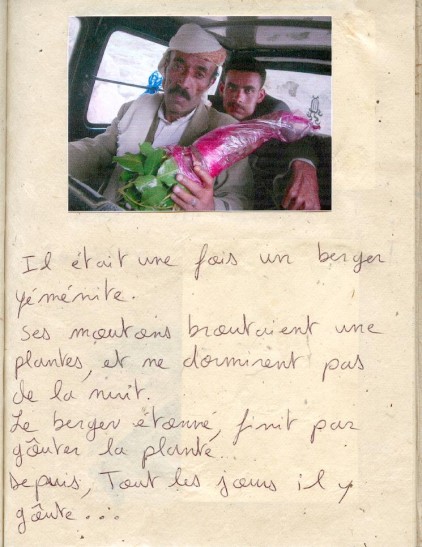 Il était une fois un berger
yéménite.
Ses moutons broutaient une
plantes, et ne dormirent pas
de la nuit.
Le berger étonné, finit par
goûter la plante..
Depuis, Tout les jours il y
goûte...